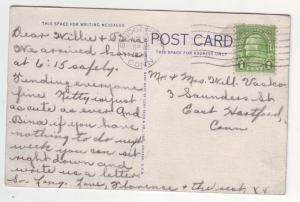 THIS SPACE FOR WRITING MESSAGES
POST CARD
CONN
Dear Willie & Bina
We arrived home
at 6:15 safely.
Finding everyone
fine Kitty just
as cute as ever And
Bina if you have
nothing to do next
week you can sit
right down and
write us a letter
So Long. Love, Florence & the rest. xx
Mr & Mrs. Will. Vasko
3 Saunders St
East Hartford,
Conn